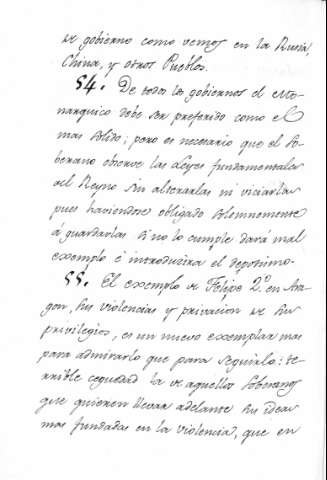 de gobierno como vemos en la Rusia,
China, y otros Pueblos.
54. De todos los gobiernos el Mo-
narquico debe ser preferido como el
mas solido; pero es necesario que el So-
berano observe las Leyes fundamentales
del Reyno sin alterarlas ni viciarlas
pues haviendose obligado solemnemente
á guardarlas si no lo cumple dará mal
exemplo é introducira el depotismo.
55. El exemplo de Felipe 2.º en Ara-
gon, sus violencias y privacion de sus
privilegios, es un nuevo exemplar mas
para admirarlo que para seguirlo: te-
rrible ceguedad la de aquellos Soberanos
que quieren llevar adelante sus ideas
mas fundadas en la violencia, que en